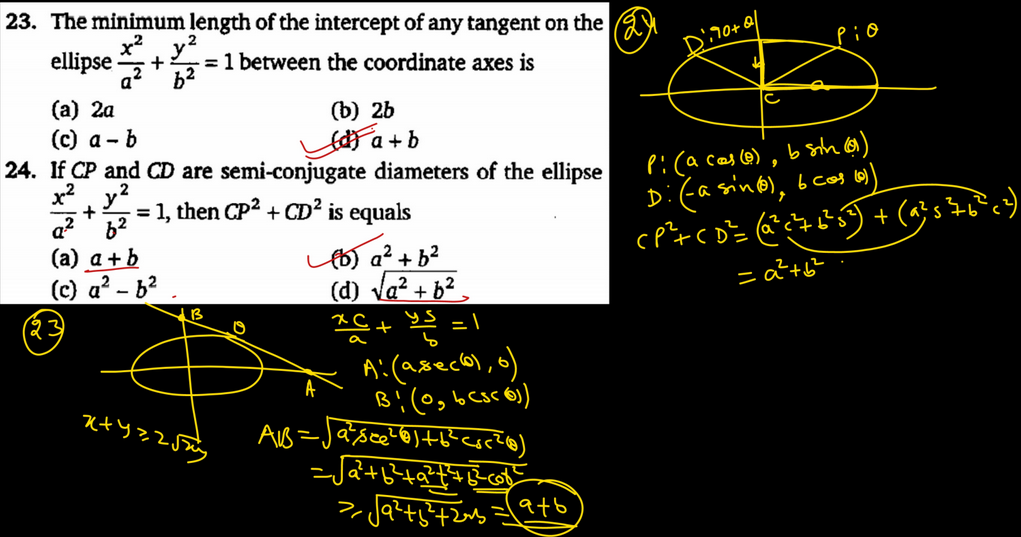 23. The minimum length of the intercept of any tangent on the
ellipse x²/a² + y²/b² = 1 between the coordinate axes is
(a) 2a (b) 2b
(c) a – b (d) a + b
24. If CP and CD are semi-conjugate diameters of the ellipse
x²/a² + y²/b² = 1, then CP² + CD² is equals
(a) a + b (b) a² + b²
(c) a² – b² (d) √(a² + b²)
24
D:90+θ P:θ
C a
P: (a cos(θ), b sin(θ))
D: (-a sin(θ), b cos(θ))
CP²+CD² = (a²c²+b²s²) + (a²s²+b²c²)
= a²+b²
23
B θ
A
x+y ≥ 2√xy
xc/a + ys/b = 1
A: (a sec(θ), 0)
B: (0, b csc(θ))
AB = √(a²sec²(θ)+b²csc²(θ))
= √(a²+b²+a²t²+b²cot²
≥ √(a²+b²+2ab = a+b